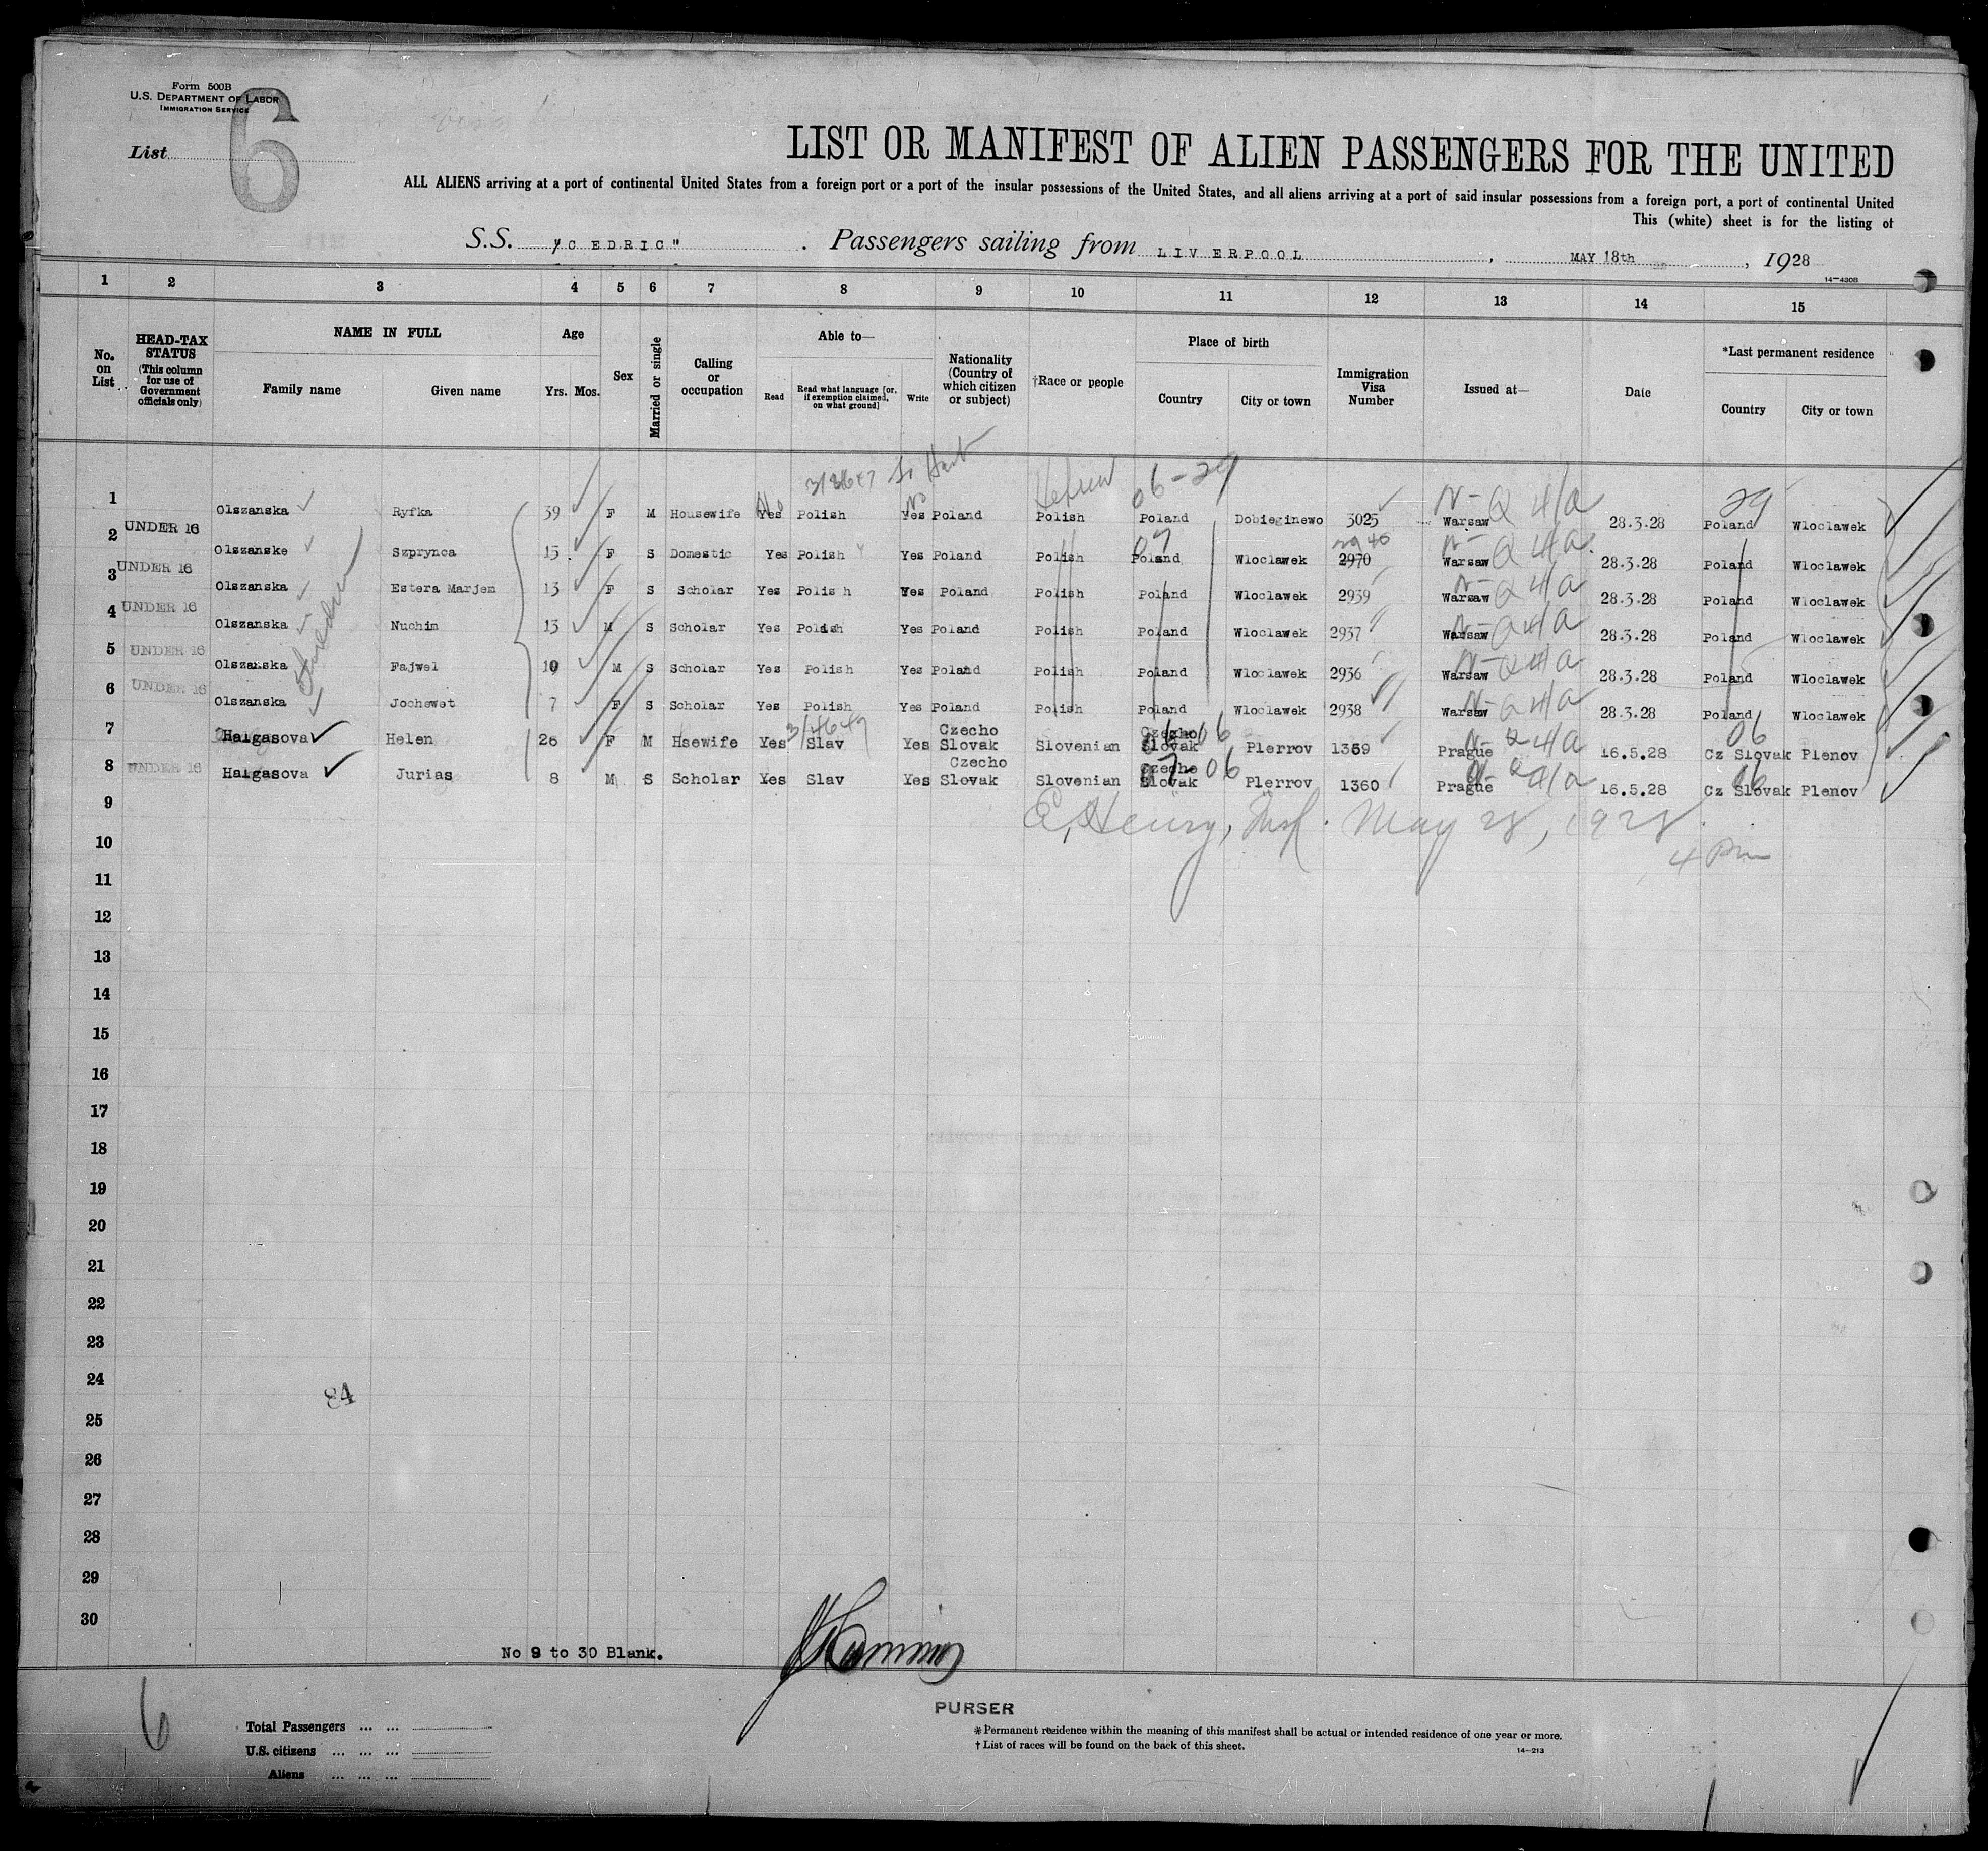 Form 500B
U.S. DEPARTMENT OF LABOR
IMMIGRATION SERVICE
List 6
LIST OR MANIFEST OF ALIEN PASSENGERS FOR THE UNITED
ALL ALIENS arriving at a port of continental United States from a foreign port or a port of the insular possessions of the United States, and all aliens arriving at a port of said insular possessions from a foreign port, a port of continental United
This (white) sheet is for the listing of
S.S. "CEDRIC" . Passengers sailing from LIVERPOOL , MAY 18th , 1928
14-430B
1 2 3 4 5 6 7 8 9 10 11 12 13 14 15
No. on List
HEAD-TAX STATUS (This column for use of Government officials only)
NAME IN FULL
Family name Given name
Age
Yrs. Mos.
Sex
Married or single
Calling or occupation
Able to—
Read Read what language [or, if exemption claimed, on what ground] Write
Nationality (Country of which citizen or subject)
†Race or people
Place of birth
Country City or town
Immigration Visa Number
Issued at—
Date
*Last permanent residence
Country City or town
Hebrew 06-29
1 Olszanska Ryfka 39 F M Housewife Yes No Polish Yes No Poland Polish Poland Dobieginewo 3025 Warsaw 28.3.28 Poland 29 Wloclawek
2 UNDER 16 Olszanske Szprynca 15 F S Domestic Yes Polish Yes Poland Polish Poland 07 Wloclawek 2970 2940 Warsaw 28.3.28 Poland Wloclawek
3 UNDER 16 Olszanska Estera Marjem 13 F S Scholar Yes Polish Yes Poland Polish Poland Wloclawek 2939 Warsaw 28.3.28 Poland Wloclawek
4 UNDER 16 Olszanska Nuchim 13 M S Scholar Yes Polish Yes Poland Polish Poland Wloclawek 2937 Warsaw 28.3.28 Poland Wloclawek
5 UNDER 16 Olszanska Fajwel 10 M S Scholar Yes Polish Yes Poland Polish Poland Wloclawek 2936 Warsaw 28.3.28 Poland Wloclawek
6 UNDER 16 Olszanska Jochewet 7 F S Scholar Yes Polish Yes Poland Polish Poland Wloclawek 2938 Warsaw 28.3.28 Poland Wloclawek
7 Halgasova Helen 26 F M Hsewife Yes Slav Yes Czecho Slovak Slovenian Czecho Slovak 06 Plerrov 1359 Prague 16.5.28 Cz Slovak 06 Plenov
8 UNDER 16 Halgasova Jurias 8 M S Scholar Yes Slav Yes Czecho Slovak Slovenian Czecho Slovak 07-06 Plerrov 1360 Prague 16.5.28 Cz Slovak 06 Plenov
9 E. Henry, Insp. May 28, 1928.
10 4 Pm
11
12
13
14
15
16
17
18
19
20
21
22
23
24
84
25
26
27
28
29
30
No 9 to 30 Blank.
PURSER
6
Total Passengers ... ...
U.S. citizens ... ... ...
Aliens ... ... ...
* Permanent residence within the meaning of this manifest shall be actual or intended residence of one year or more.
† List of races will be found on the back of this sheet.
14-213